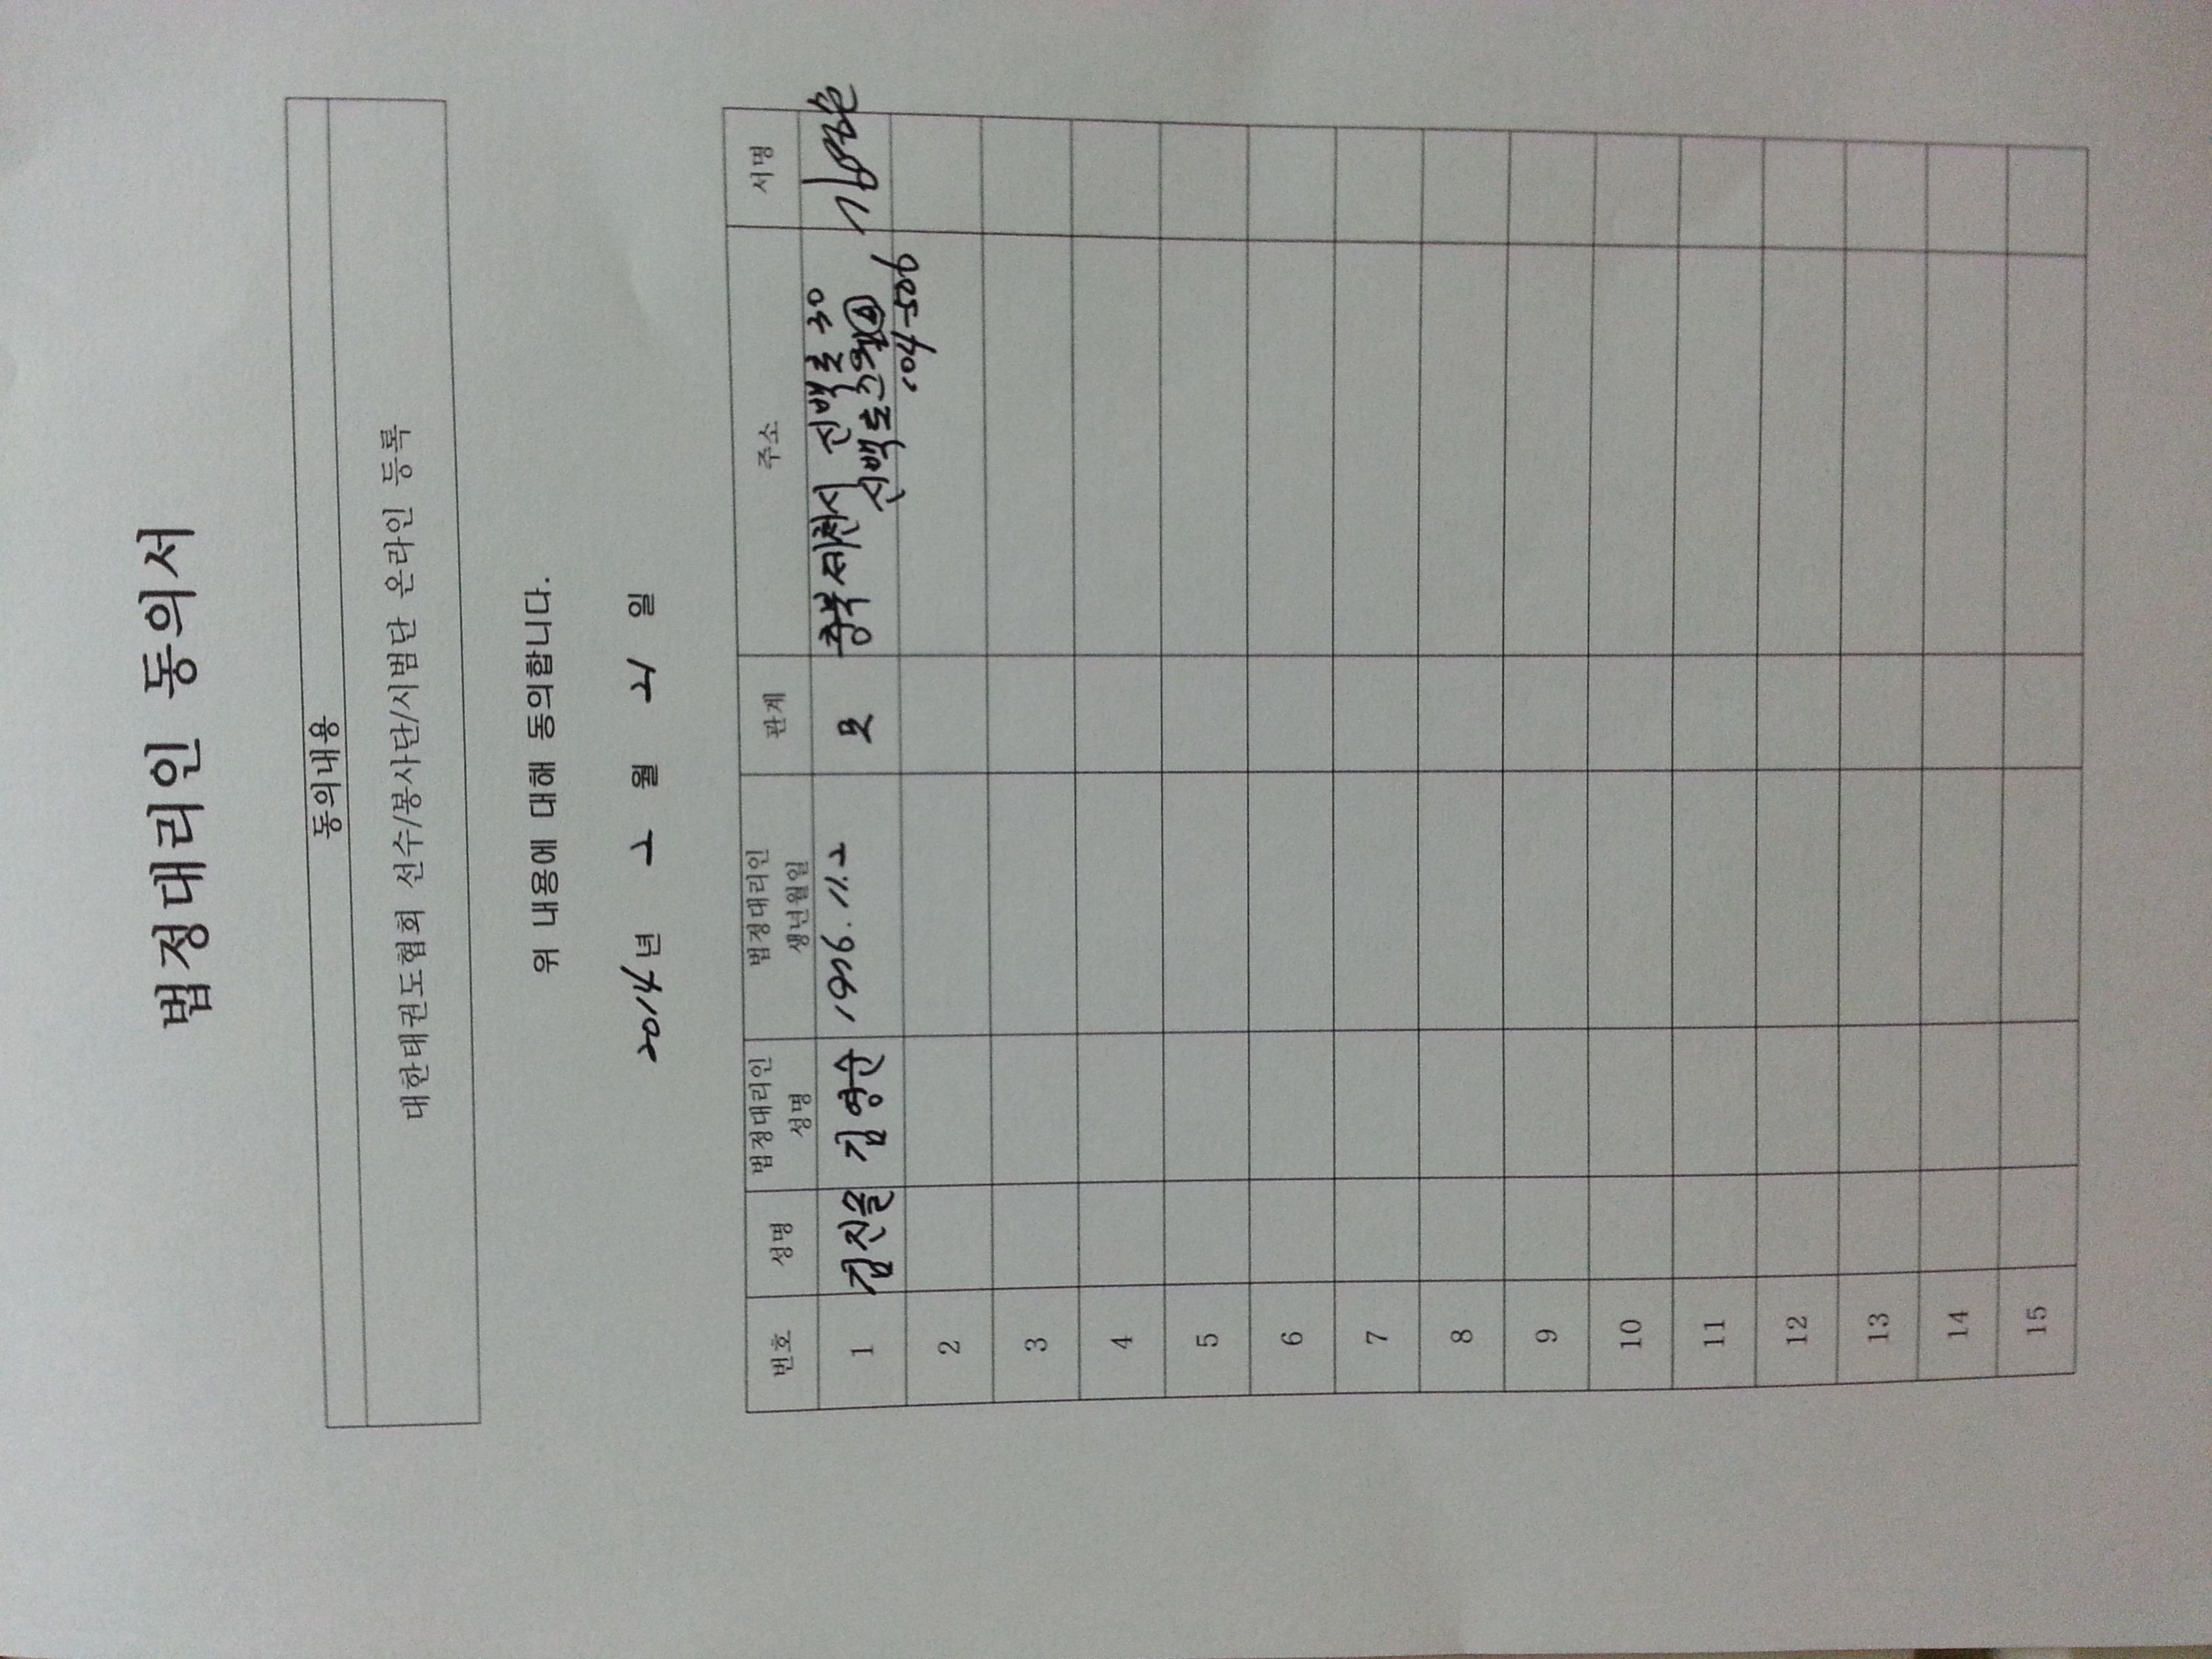 법정대리인 동의서
동의내용
대한태권도협회 선수/봉사단/시범단 온라인 등록
위 내용에 대해 동의합니다.
2014년 2월 21일
번호 성명 법정대리인 성명 법정대리인 생년월일 관계 주소 서명
1 김진솔 김영순 1976.11.2 모 충북 제천시 신백로 30
신백로
104-506
2
3
4
5
6
7
8
9
10
11
12
13
14
15